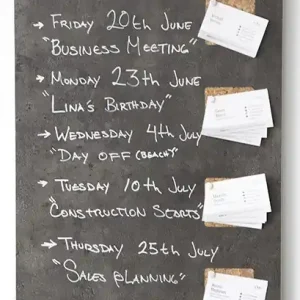 → Friday 20th June
"Business Meeting"
→ Monday 23th June
"Lina's Birthday"
→ Wednesday 4th July
"Day off (beach)"
→ Tuesday 10th July
"Construction Starts"
→ Thursday 25th July
"Sales planning"